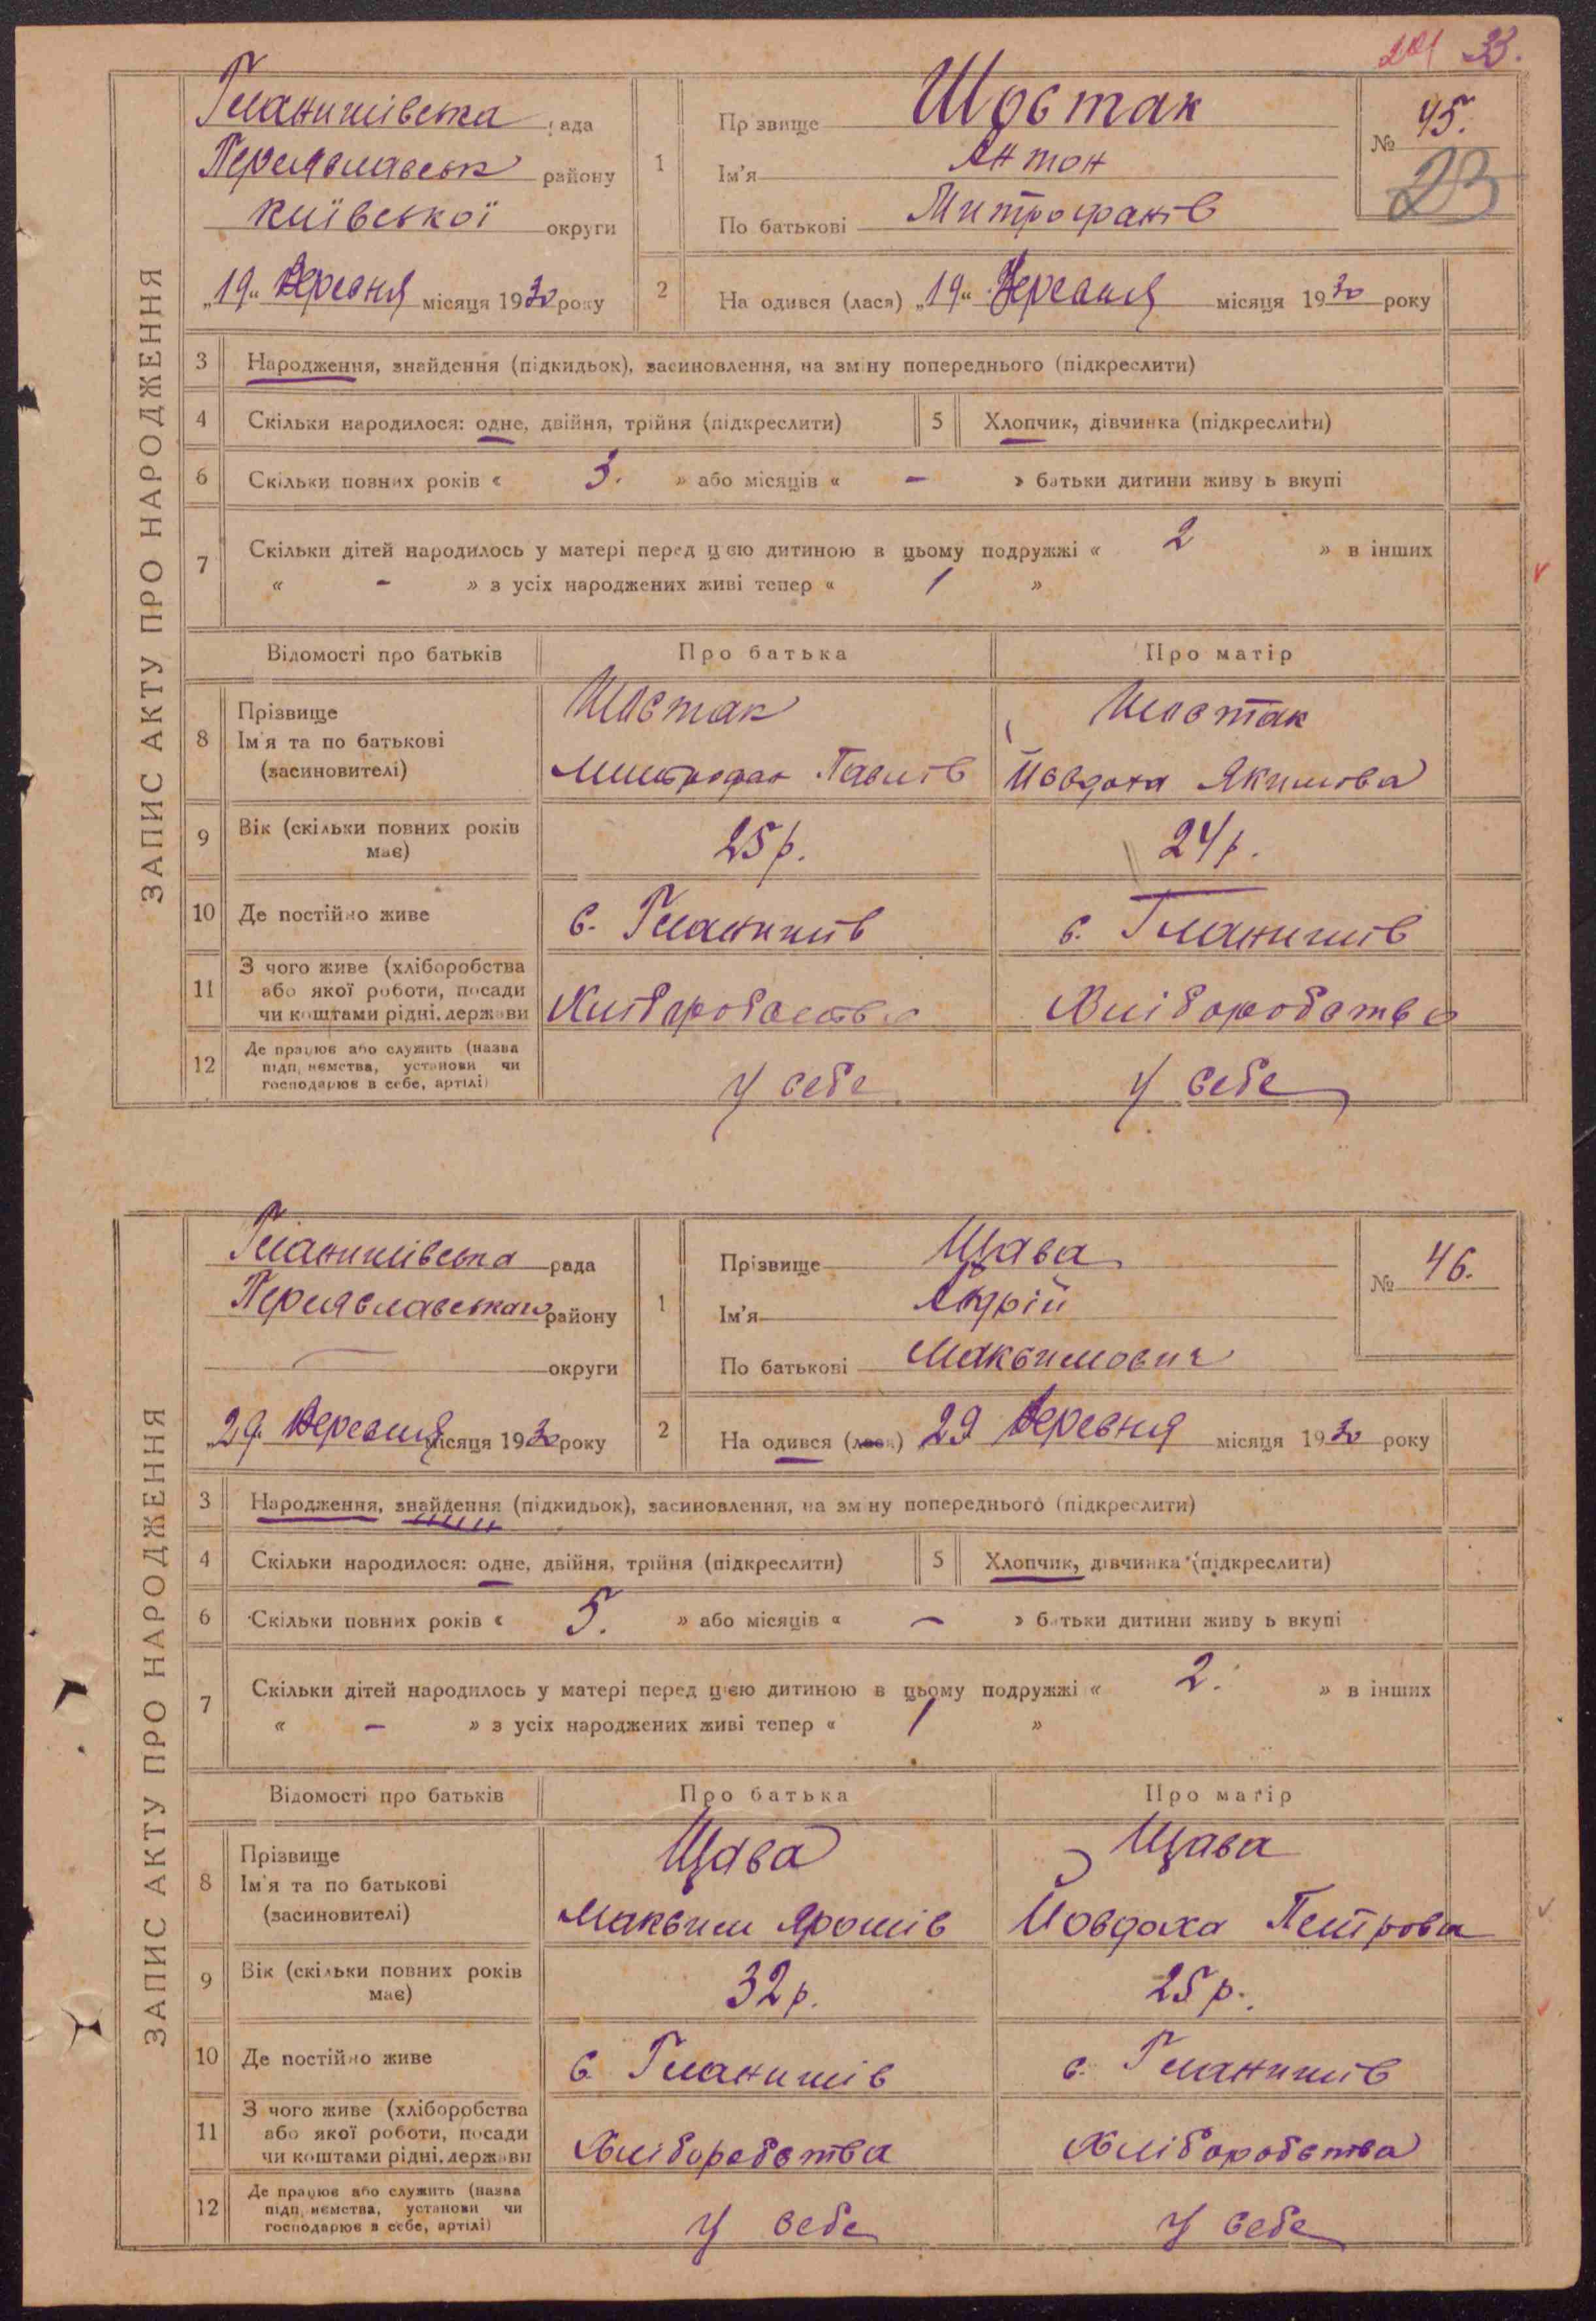 201 33.
Гланишівська рада
Переяславськ району
Київської округи
„19“ Вересня місяця 1930 року
1
Прізвище Шостак
Ім'я Антон
По батькові Митрофанів
№ 45.
23
2 На одився (лася) „19“ Вересня місяця 1930 року
ЗАПИС АКТУ ПРО НАРОДЖЕННЯ
3 Народження, знайдення (підкидьок), засиновлення, на зміну попереднього (підкреслити)
4 Скільки народилося: одне, двійня, трійня (підкреслити) 5 Хлопчик, дівчинка (підкреслити)
6 Скільки повних років « 3. » або місяців « - » батьки дитини живу ь вкупі
7 Скільки дітей народилось у матері перед цією дитиною в цьому подружжі « 2 » в інших
« - » з усіх народжених живі тепер « 1 »
Відомості про батьків Про батька Про матір
8 Прізвище
Ім'я та по батькові
(засиновителі)
Шостак
Митрофан Павлів
Шостак
Йовдоха Якимова
9 Вік (скільки повних років
має)
25 р. 24 р.
10 Де постійно живе с. Гланишів с. Гланишів
11 З чого живе (хліборобства
або якої роботи, посади
чи коштами рідні, держави
Хліборобство Хліборобство
12 Де працює або служить (назва
підп, иємства, установи чи
господарює в себе, артілі)
у себе у себе
Гланишівська рада
Переяславського району
округи
„29. Вересня місяця 1930 року
1
Прізвище Щава
Ім'я Андрій
По батькові Максимович
№ 46.
2 На одився (лася) 29 Вересня місяця 1930 року
ЗАПИС АКТУ ПРО НАРОДЖЕННЯ
3 Народження, знайдення (підкидьок), засиновлення, на зміну попереднього (підкреслити)
4 Скільки народилося: одне, двійня, трійня (підкреслити) 5 Хлопчик, дівчинка (підкреслити)
6 Скільки повних років « 5. » або місяців « - » батьки дитини живу ь вкупі
7 Скільки дітей народилось у матері перед цією дитиною в цьому подружжі « 2. » в інших
« - » з усіх народжених живі тепер « 1 »
Відомості про батьків Про батька Про матір
8 Прізвище
Ім'я та по батькові
(засиновителі)
Щава
Максим Ярошів
Щава
Йовдоха Петрова
9 Вік (скільки повних років
має)
32 р. 25 р.
10 Де постійно живе с. Гланишів с. Гланишів
11 З чого живе (хліборобства
або якої роботи, посади
чи коштами рідні, держави
Хліборобства Хліборобства
12 Де працює або служить (назва
підп, иємства, установи чи
господарює в себе, артілі)
у себе у себе